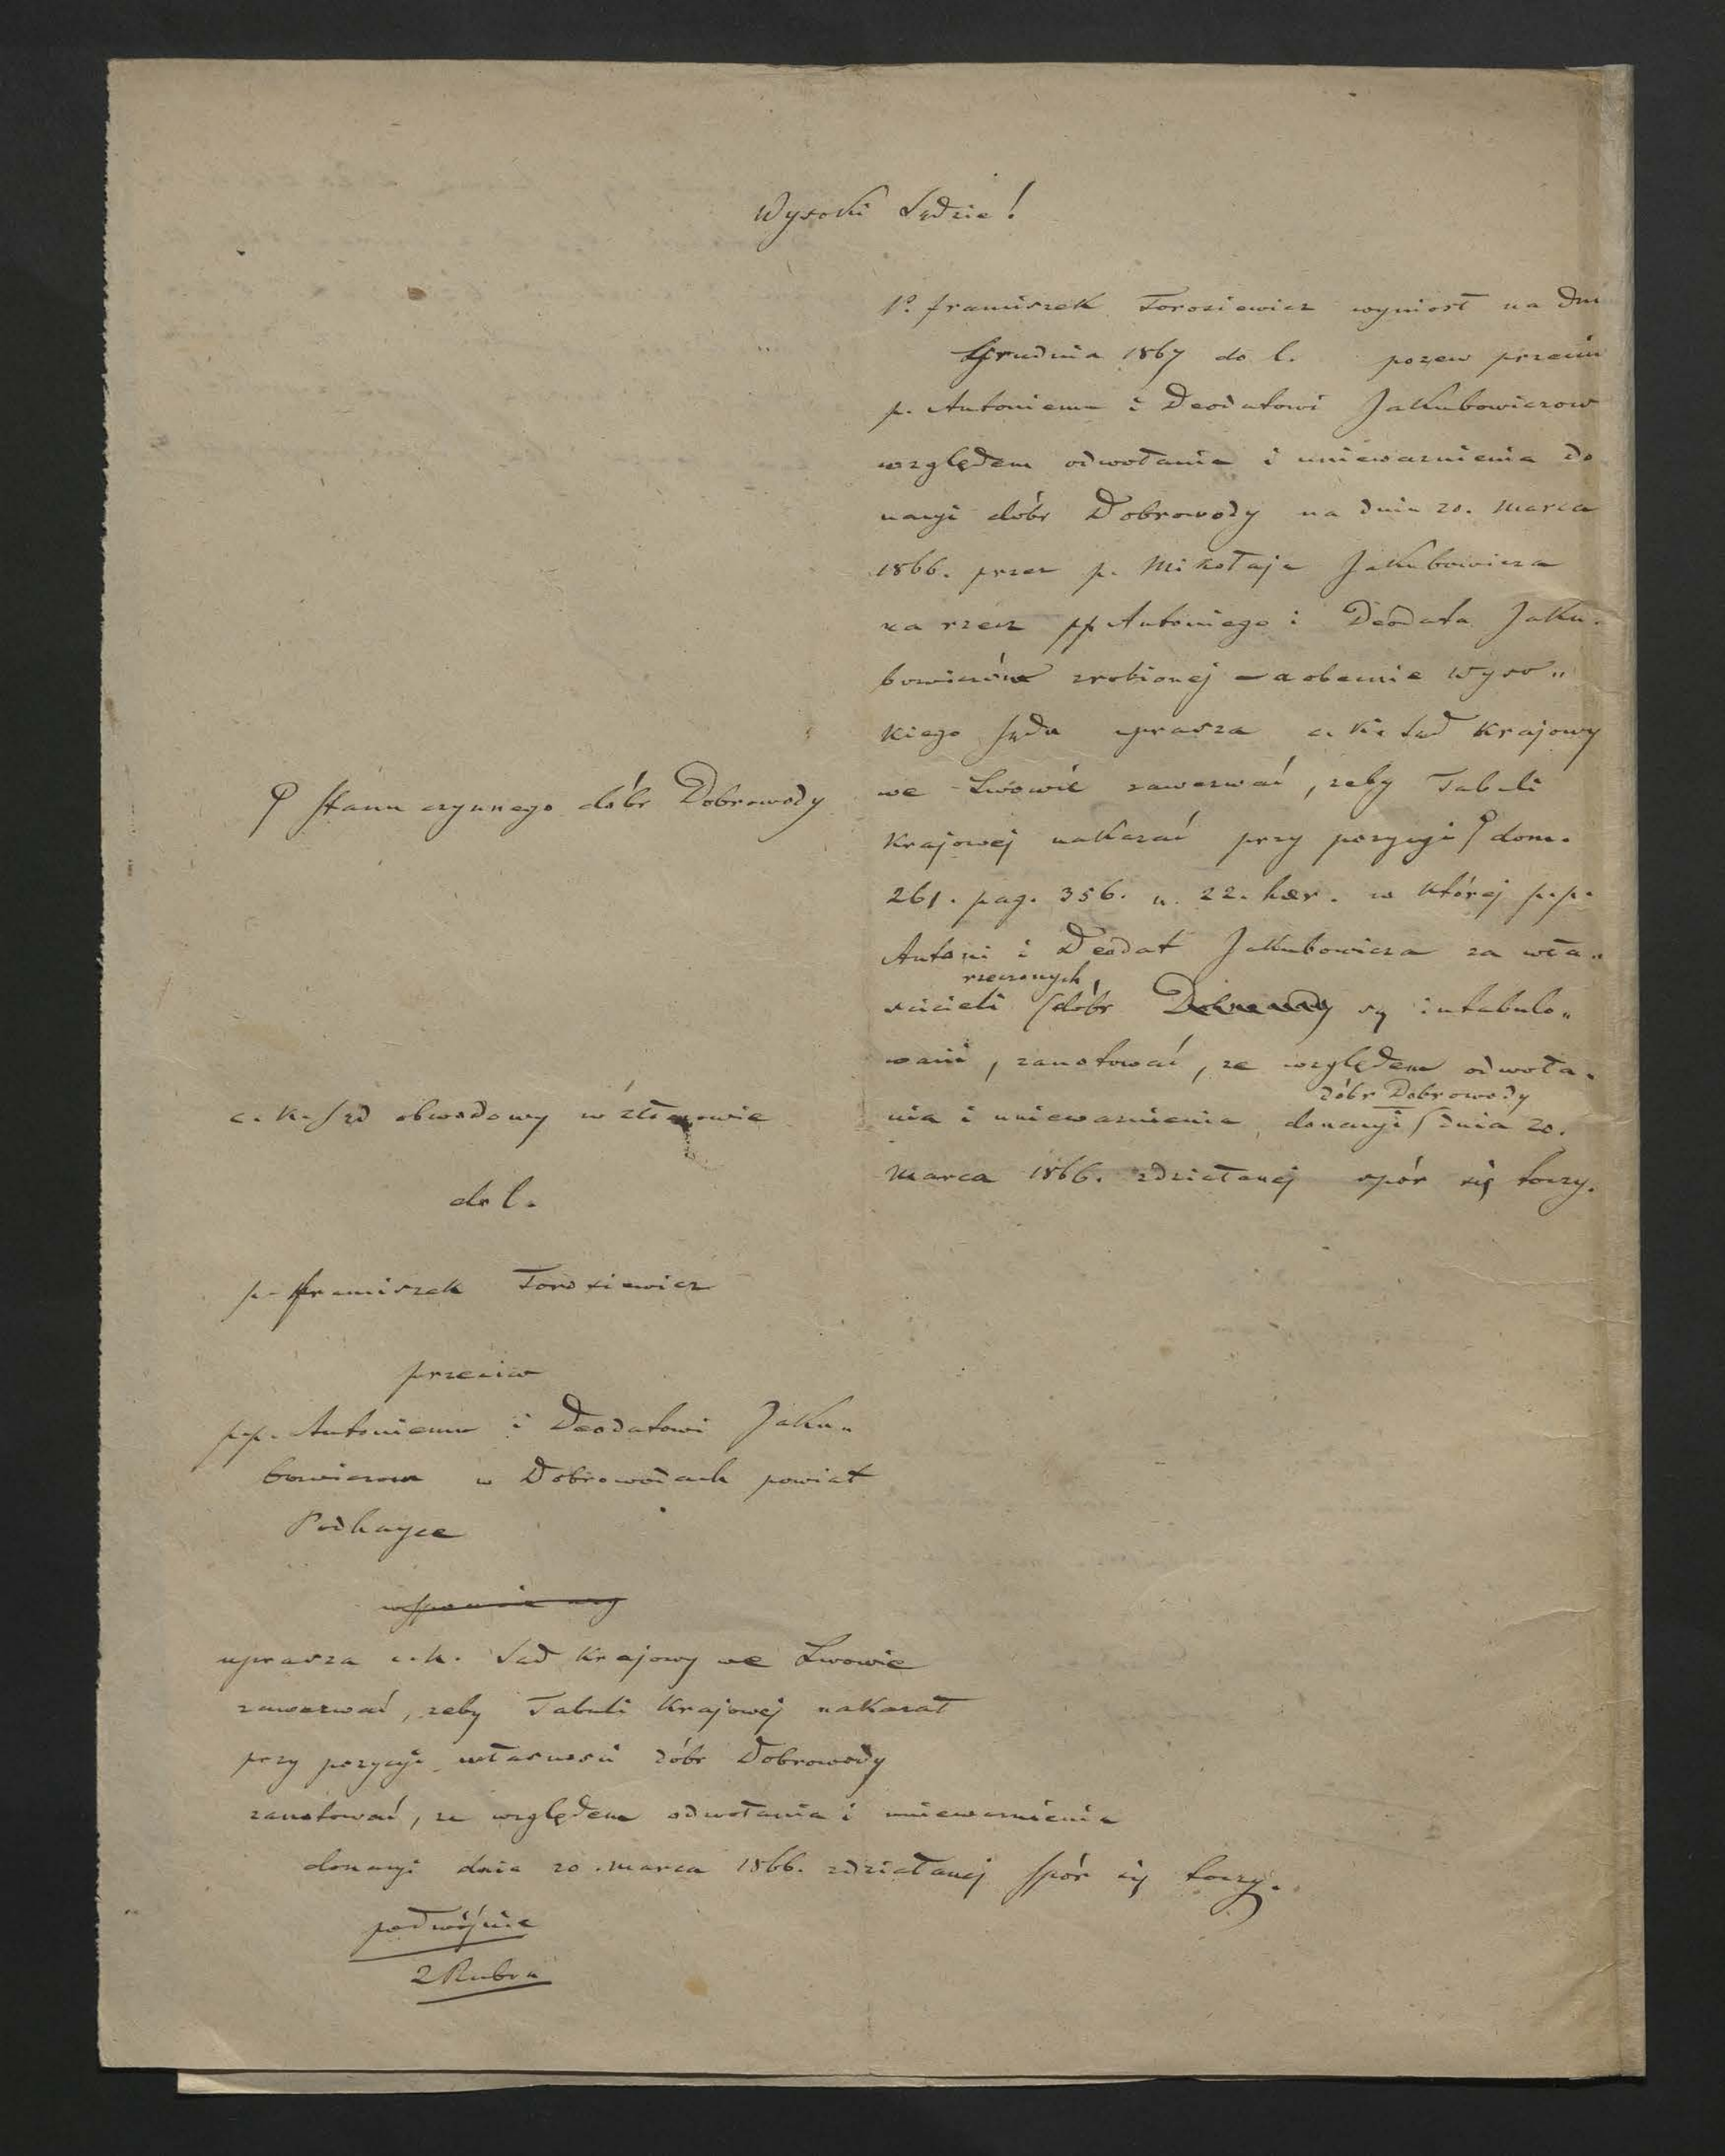 Wysoki Sądzie!
1º franciszek Torosiewicz wyniosł na dniu
Grudnia 1867 do l. pozew przeciw
p. Antoniemu i Deodatowi Jakubowiczow
względem odwołania i unieważnienia do
nacyi dóbr Dobrowody na dniu 20. Marca
1866. przez p. Mikołaja Jakubowicza
na rzecz pp Antoniego i Deodata Jaku-
bowiczów zrobionej – a obecnie Wyso„
kiego Sądu uprasza c. k. Sąd Krajowy
we Lwowie zawezwać, zeby Tabuli
Krajowej nakazać przy pozycyi dom.
261. pag. 356. n. 22. hær. w której p.p.
Antoni i Deodat Jakubowicza za wła-
rzeczonych
scicieli dóbr Dobrowody są intabulo„
wani, zanotować, ze względem odwoła-
dóbr Dobrowody
nia i unieważnienia donacyi dnia 20.
Marca 1866. zdziałanej spór się toczy.
Stanu czynnego dóbr Dobrowody
c. k. Sąd obwodowy w Złoczowie
do l.
p. franciszek Torosiewicz
przeciw
p.p. Antoniemu i Deodatowi Jaku„
bowiczom w Dobrowodach powiat
Podhayce
uprasza c.k. Sąd Krajowy we Lwowie
zawezwać, zeby Tabuli Krajowej nakazał
przy pozycyi własności dóbr Dobrowody
zanotować, ze względem odwołania i unieważnienia
donacyi dnia 20. marca 1866. zdziałanej spór się toczy.
podwójnie
2 Rubra